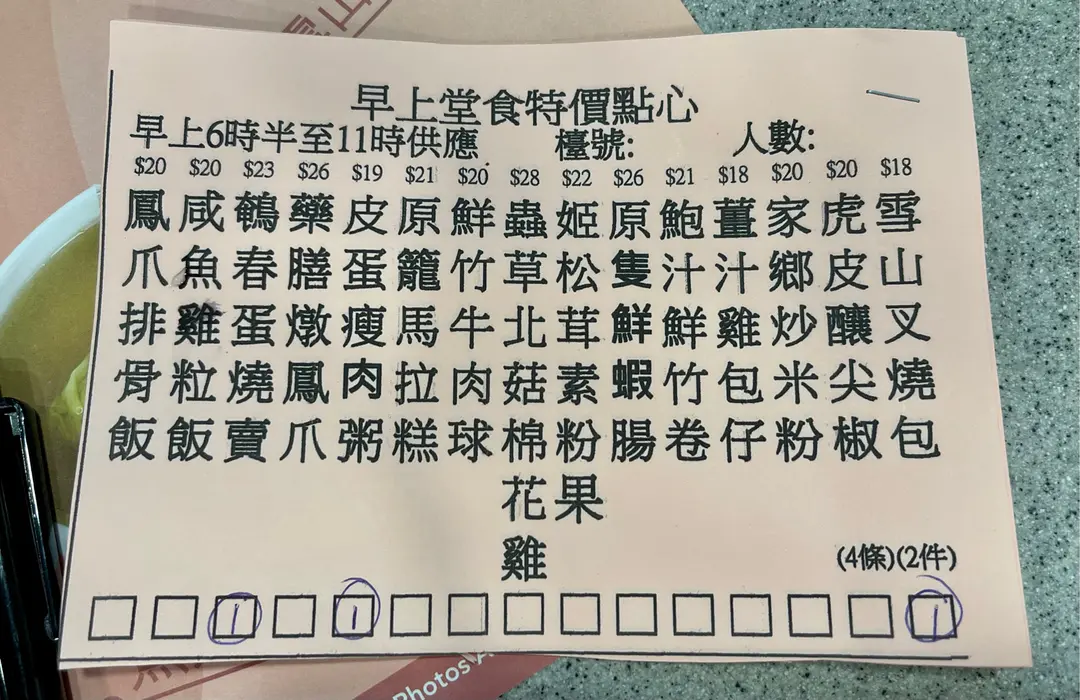 早上堂食特價點心
早上6時半至11時供應 檯號: 人數:
$20 $20 $23 $26 $19 $21 $20 $28 $22 $26 $21 $18 $20 $20 $18
雪山叉燒包
虎皮釀尖椒
家鄉炒米粉
薑汁雞包仔
鮑汁鮮竹卷
原隻鮮蝦腸
姬松茸素粉果
蟲草北菇棉花雞
鮮竹牛肉球
原籠馬拉糕
皮蛋瘦肉粥
藥膳燉鳳爪
鵪春蛋燒賣
咸魚雞粒飯
鳳爪排骨飯
(4條)(2件)
1 1 1
Photos